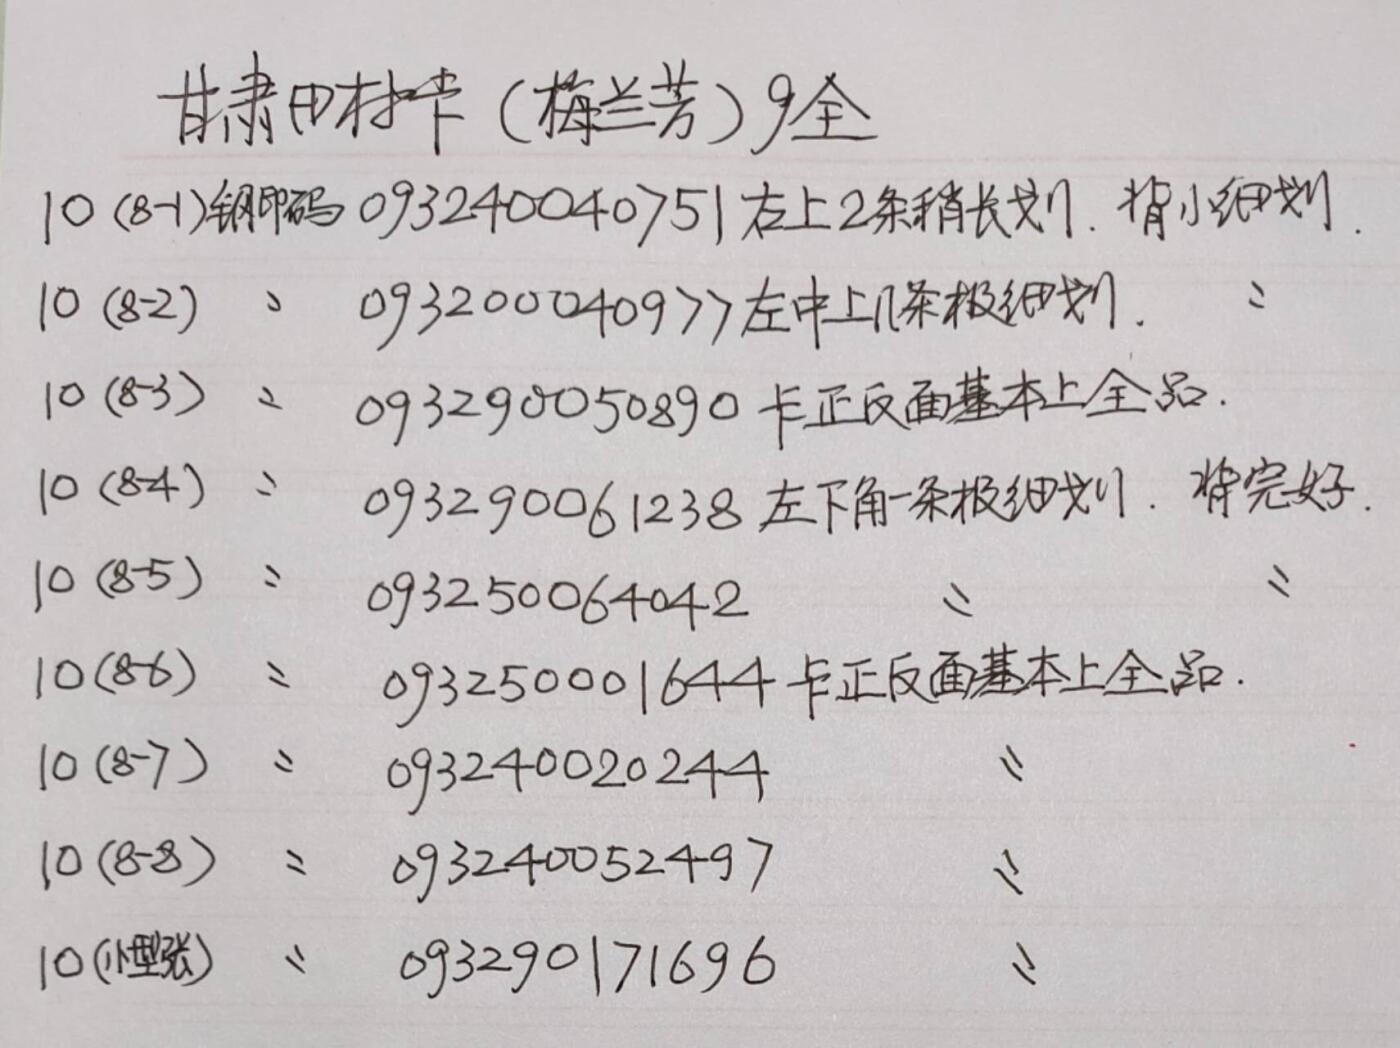 甘肃田村卡（梅兰芳）9全
10（8-1）钢印码 093240040751 右上2条稍长划. 背小细划.
10（8-2） 〃 093200040977 左中上几条极细划. 〃
10（8-3） 〃 093290050890 卡正反面基本上全品.
10（8-4） 〃 093290061238 左下角一条极细划. 背完好.
10（8-5） 〃 093250064042 〃 〃
10（8-6） 〃 093250001644 卡正反面基本上全品.
10（8-7） 〃 093240020244 〃
10（8-8） 〃 093240052497 〃
10（小型张） 〃 093290171696 〃